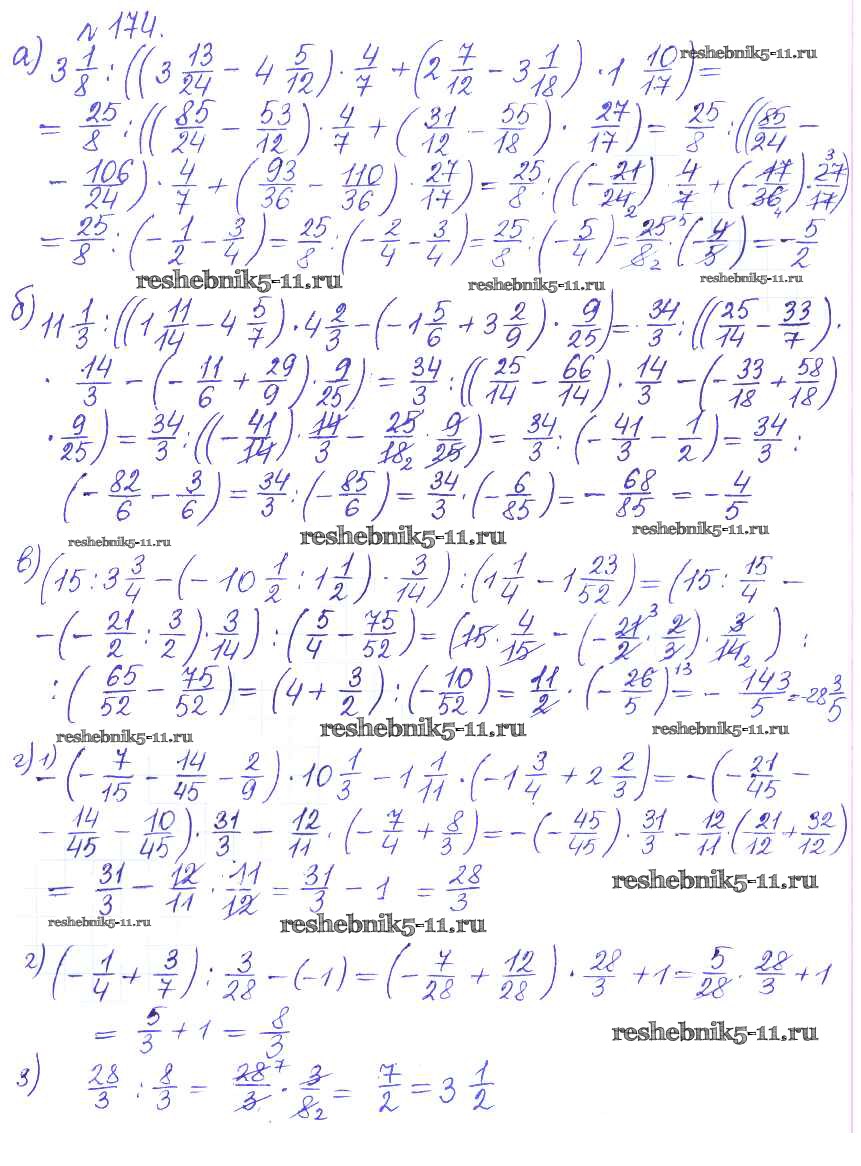 № 174.
а) 3 1/8 : ((3 13/24 - 4 5/12) · 4/7 + (2 7/12 - 3 1/18) · 1 10/17) =
reshebnik5-11.ru
= 25/8 : ((85/24 - 53/12) · 4/7 + (31/12 - 55/18) · 27/17) = 25/8 : ((85/24 -
- 106/24) · 4/7 + (93/36 - 110/36) · 27/17) = 25/8 : ((-21/24) · 4/7 + (-17/36) · 27/17)
= 25/8 : (-1/2 - 3/4) = 25/8 : (-2/4 - 3/4) = 25/8 : (-5/4) = 25/8 · (-4/5) = -5/2
reshebnik5-11.ru reshebnik5-11.ru reshebnik5-11.ru
б) 11 1/3 : ((1 11/14 - 4 5/7) · 4 2/3 - (-1 5/6 + 3 2/9) · 9/25) = 34/3 : ((25/14 - 33/7) ·
· 14/3 - (-11/6 + 29/9) · 9/25) = 34/3 : ((25/14 - 66/14) · 14/3 - (-33/18 + 58/18)
· 9/25) = 34/3 : ((-41/14) · 14/3 - 25/18 · 9/25) = 34/3 : (-41/3 - 1/2) = 34/3 :
(-82/6 - 3/6) = 34/3 : (-85/6) = 34/3 · (-6/85) = -68/85 = -4/5
reshebnik5-11.ru reshebnik5-11.ru reshebnik5-11.ru
в) (15 : 3 3/4 - (-10 1/2 : 1 1/2) · 3/14) : (1 1/4 - 1 23/52) = (15 : 15/4 -
- (-21/2 : 3/2) · 3/14) : (5/4 - 75/52) = (15 · 4/15 - (-21/2 · 2/3) · 3/14) :
: (65/52 - 75/52) = (4 + 3/2) : (-10/52) = 11/2 · (-26/5) = -143/5 = -28 3/5
reshebnik5-11.ru reshebnik5-11.ru reshebnik5-11.ru
г) 1) -(-7/15 - 14/45 - 2/9) · 10 1/3 - 1 1/11 · (-1 3/4 + 2 2/3) = -(-21/45 -
- 14/45 - 10/45) · 31/3 - 12/11 · (-7/4 + 8/3) = -(-45/45) · 31/3 - 12/11 · (21/12 + 32/12)
= 31/3 - 12/11 · 11/12 = 31/3 - 1 = 28/3
reshebnik5-11.ru
reshebnik5-11.ru reshebnik5-11.ru
2) (-1/4 + 3/7) : 3/28 - (-1) = (-7/28 + 12/28) · 28/3 + 1 = 5/28 · 28/3 + 1
= 5/3 + 1 = 8/3
reshebnik5-11.ru
3) 28/3 : 8/3 = 28/3 · 3/8 = 7/2 = 3 1/2